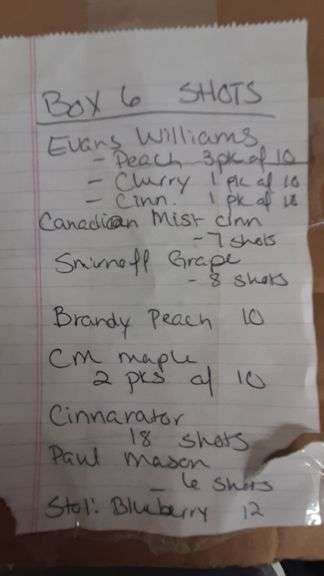 Box 6 SHOTS
Evans Williams
- Peach 3pk of 10
- Churry 1 pk of 10
- Cinn. 1 pk of 10
Canadian Mist cinn
- 7 shots
Smirnoff Grape
- 8 shots
Brandy Peach 10
CM maple
2 pks of 10
Cinnarator
18 shots
Paul Mason
- 6 shots
Stoli Blueberry 12